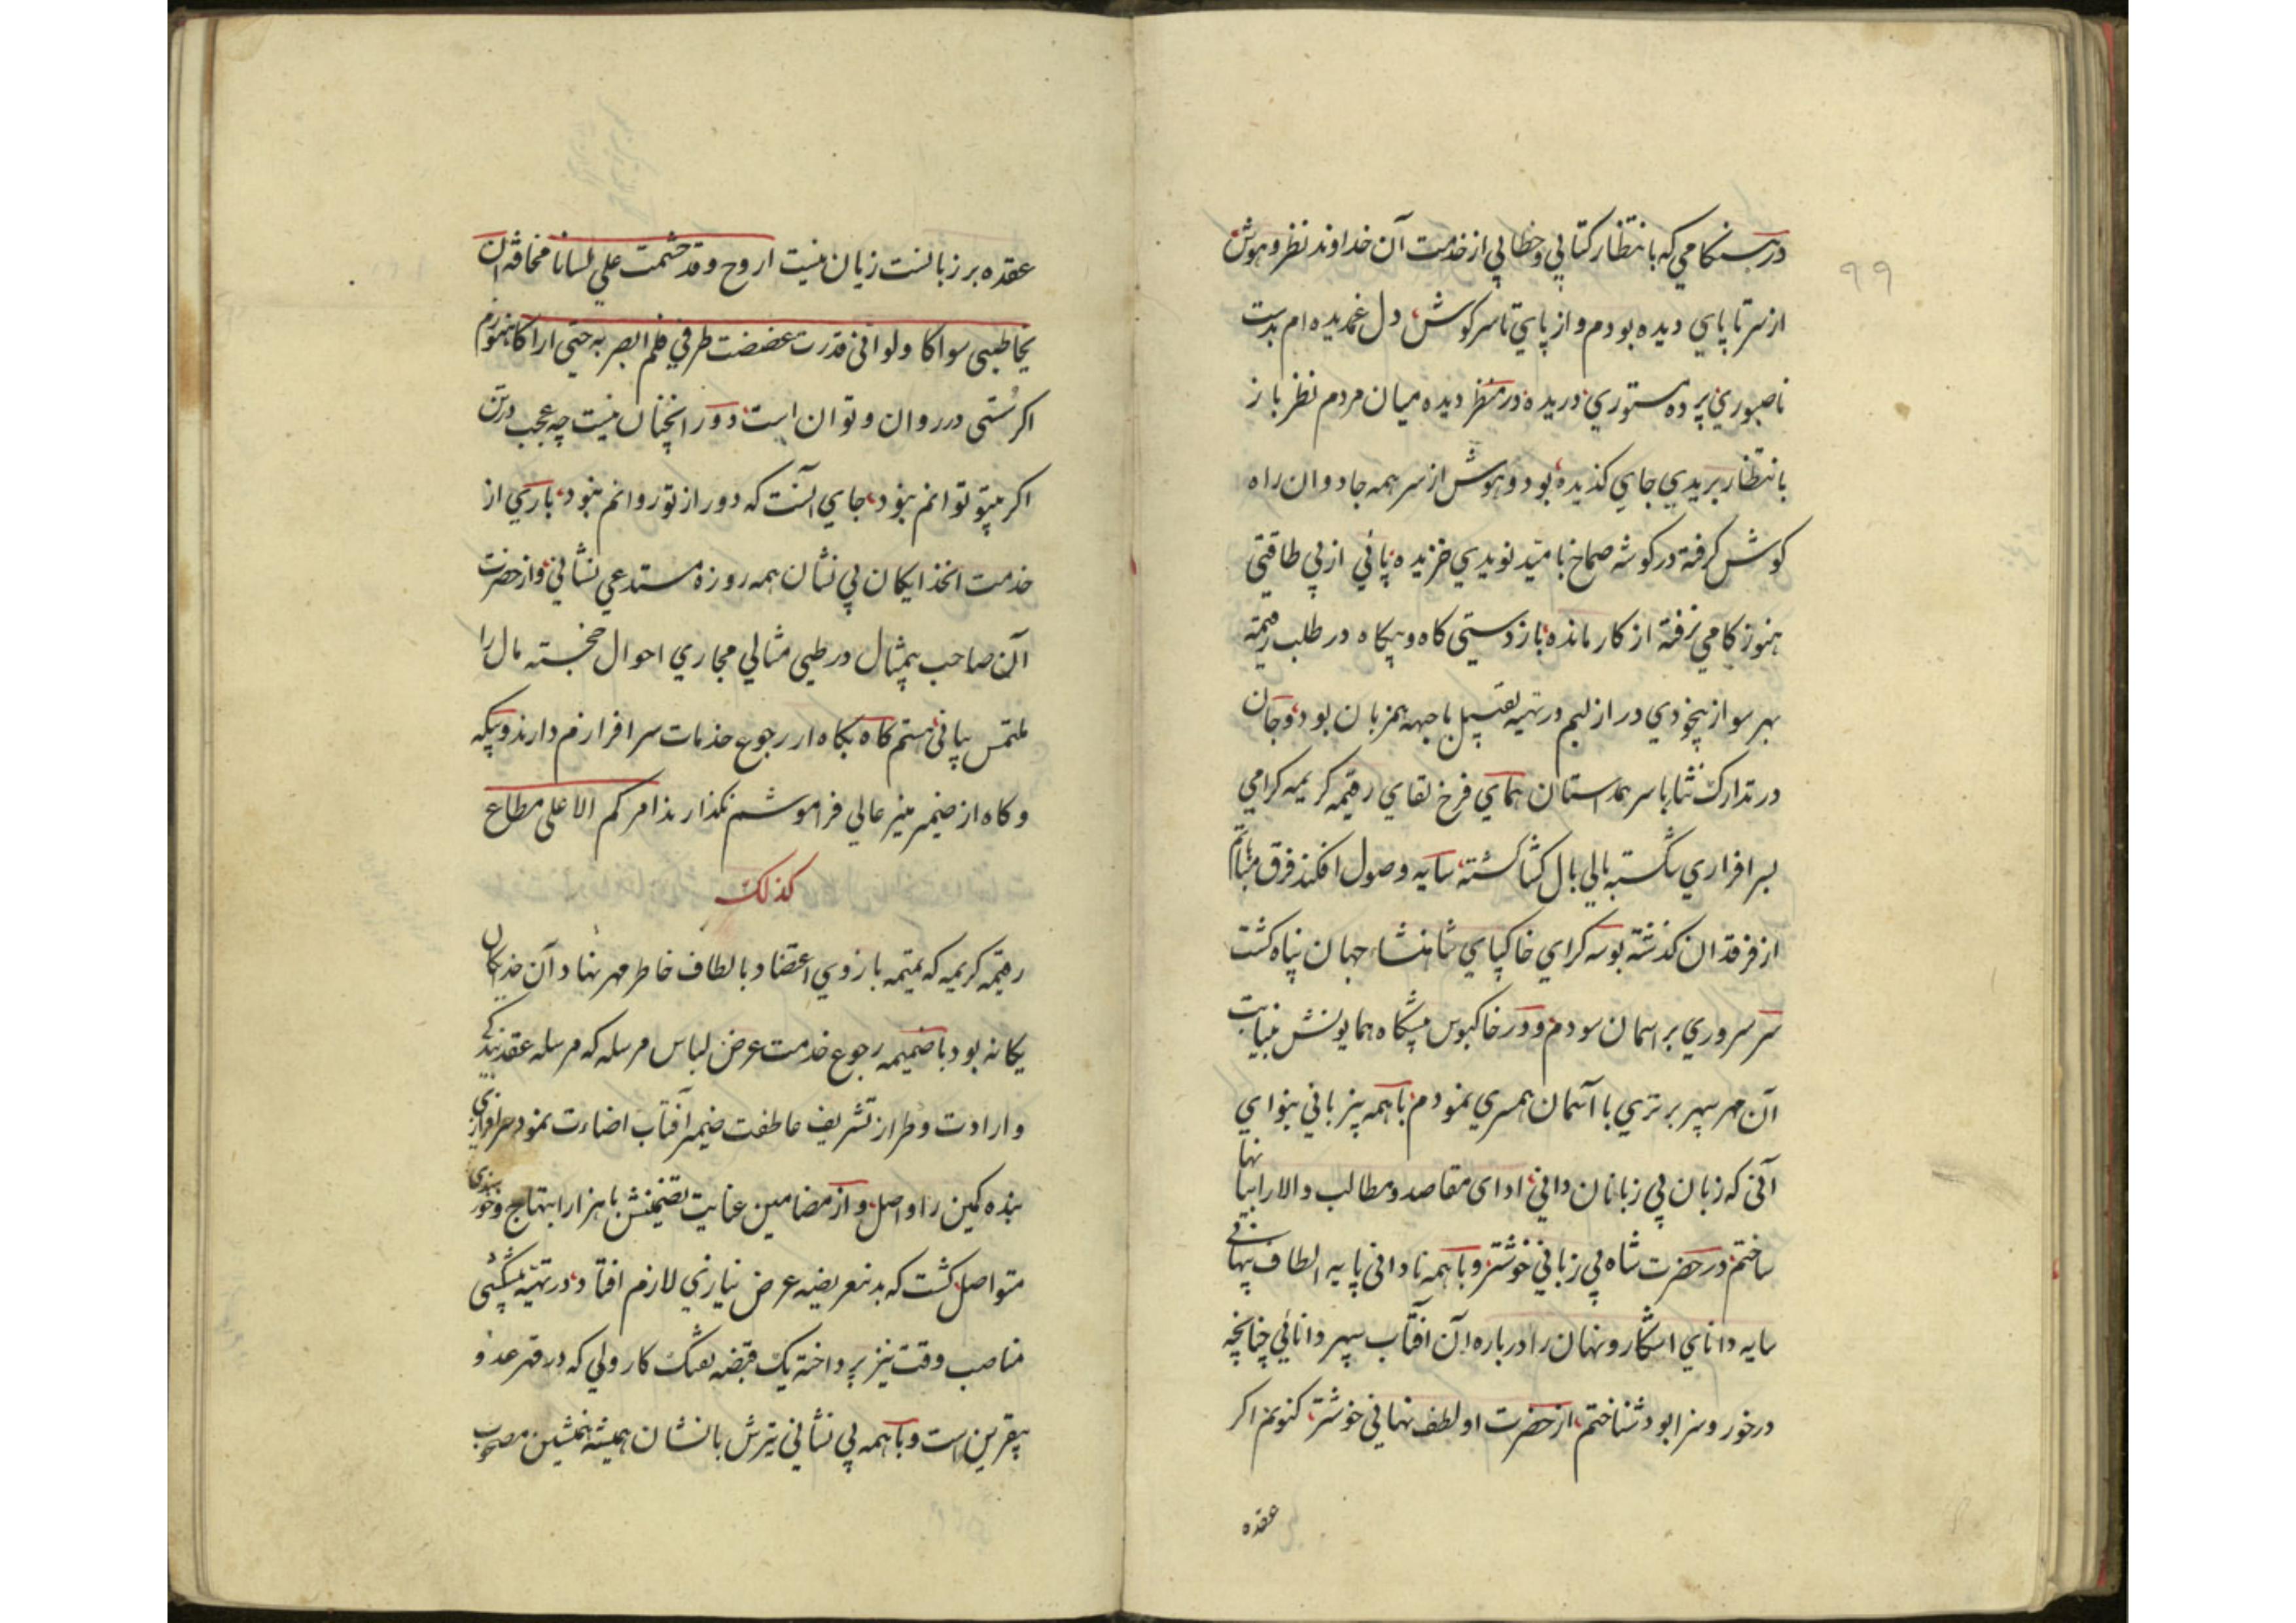 ۹۹
درهنکامي که بانتظار کتابي و خطابي از خدمت آن خداوند نظر و هوش
از سر تا پاي ديده بودم و از پاي تا سر کوش دل غمديده ام بدست
ناصبوري پرده مستوري دريده در منظر ديده ميان مردم نظر باز
بانتظار بريدي جاي کذيده بود و هوش از سر همه جا دوان راه
کوش کرفته در کوشه صماخ باميد نويدي خزيده پائي از بي طاقتي
هنوز کامي نرفته از کار مانده باز دستي کاه و بيکاه در طلب رقيمه
بهر سو از بيخودي دراز لبم در تهيه تقبيل با جبهه همزبان بود و جان
در تدارک نثار با سر همداستان هماي فرخ لقاي رقيمه کريمه کرامي
بسرافرازي شکسته بالي بال کشا کشته سايه وصول افکند فرق مباهاتم
از فرقدان کذشته بوسه کراي خاکپاي شاهنشاه جهان پناه کشت
سر سروري بر اسمان سودم و در خاکبوس پيشکاه همايونش بنيابت
آن مهر سپهر برتري با آسمان همسري نمودم با همه بيزباني بنواي
آنی که زبان بي زبانان داني اداى مقاصد و مطالب والا را بيا نها
ساختم در حضرت شاه بي زباني خوشتر و با همه ناداني پايه الطاف پنهانی
سايه داناي اشکار و نهان را درباره آن آفتاب سپهر دانائي چنانچه
درخور و سزا بود شناختم از حضرت او لطف نهاني خوشتر کنونم اکر
عقده
عقده بر زبانست زيان نيست اروح و قد ختمت علي لسانا مخافة ان
يخاطبنى سواکا ولو انى قدرت غضضت طرفي فلم ابصر به حتى اراکا هنوزم
اکر سستى در روان و توان است دور انچنان نيست چه عجب در تن
اکر بيتو توانم نبود جاي آنست که دور از تو روانم نبود باري از
خدمت انخدايکان بي نشان همه روزه مستدعي نشاني و از حضرت
آن صاحب بيمثال در طى مثالي مجاري احوال خجسته مال را
ملتمس بياني هستم کاه بکاه ار رجوع خدمات سرافرازم دارند و بيکه
و کاه از ضمير منير عالي فراموشم نکذارند امرکم الاعلى مطاع
کذلک
رقيمه کريمه که تميمه بازوي اعتضاد بالطاف خاطر مهر نهاد آن خدايکان
يکانه بود با ضميمه رجوع خدمت عرض لباس مرسله که مرسله عقد بندکی
و ارادت و طراز تشريف عاطفت ضمير آفتاب اضاءت نمود سرافرازي
بنده کمين را واصل و از مضامين عنايت تضمينش با هزار ابتهاج و خورسندی
متواصل کشت که بدينعريضه عرض نيازي لازم افتاد در تهيه پيشکشى
مناسب وقت نيز پرداخته يک قبضه تفنک کار ولي که در قهر عدو
بيقرين است و با همه بي نشاني تيرش با نشان هميشه همنشين مصحوب